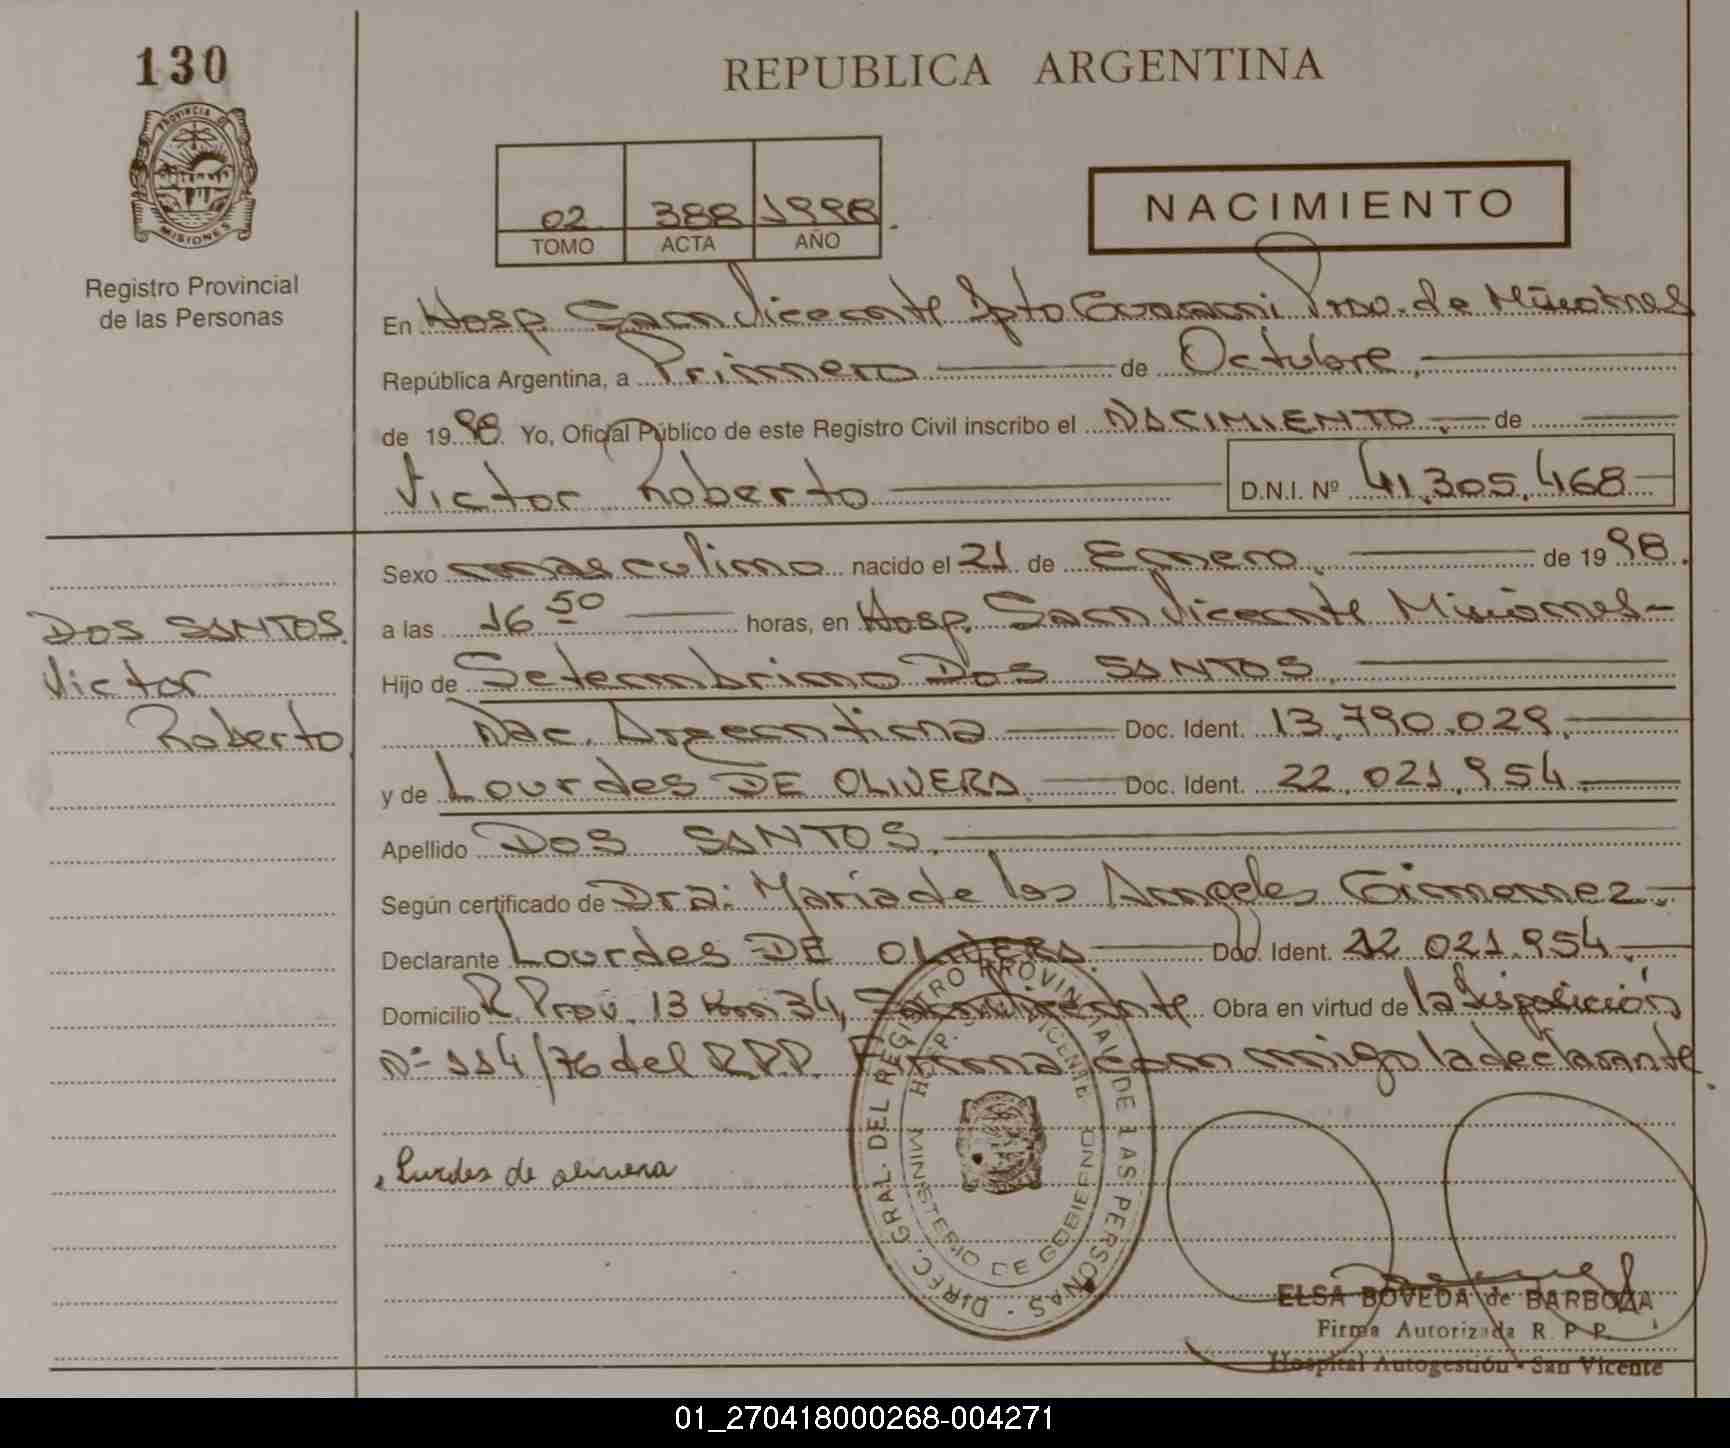 130
PROVINCIA DE
MISIONES
Registro Provincial
de las Personas
REPUBLICA ARGENTINA
02 388 1998
TOMO ACTA AÑO
NACIMIENTO
En Hosp. San Vicente Dpto Guarani Prov. de Misiones
República Argentina, a Primero de Octubre,
de 1998. Yo, Oficial Público de este Registro Civil inscribo el NACIMIENTO. de
Victor Roberto D.N.I. Nº 41.305.468
Sexo masculino nacido el 21 de Enero. de 1998.
a las 16 50 horas, en Hosp. San Vicente Misiones-
Hijo de Setembrino Dos SANTOS.
Nac. Argentina Doc. Ident. 13.790.029.
y de Lourdes DE OLIVERA. Doc. Ident. 22.021.954.
Apellido DOS SANTOS.
Según certificado de Dra: Maria de los Angeles Gimenez.
Declarante Lourdes DE OLIVERA. Doc. Ident. 22 021.954.
Domicilio R. Prov. 13 Km 34, San Vicente Obra en virtud de la disposición
Nº 114/76 del R.P.P. Firma con migo la declarante.
DOS SANTOS.
Victor
Roberto.
Lurdes de
DIREC. GRAL. DEL REGISTRO PROVINCIAL DE LAS PERSONAS
HOSP. SAN VICENTE
MINISTERIO DE GOBIERNO
ELSA BOVEDA de BARBOZA
Firma Autorizada R. P. P.
Hospital Autogestión - San Vicente
01_270418000268-004271